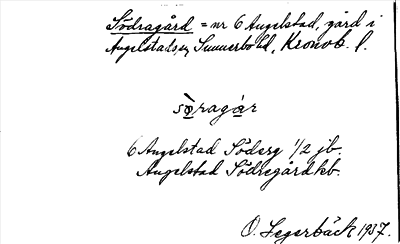 Södragård = nr 6 Angelstad, gård i
Angelstads sn, Sunnerbo hd, Kronob. l.
sø̀ragar
6 Angelstad Söderg 1/2 jb.
Angelstad Södregård kb.
O. Legerbäck 1937.